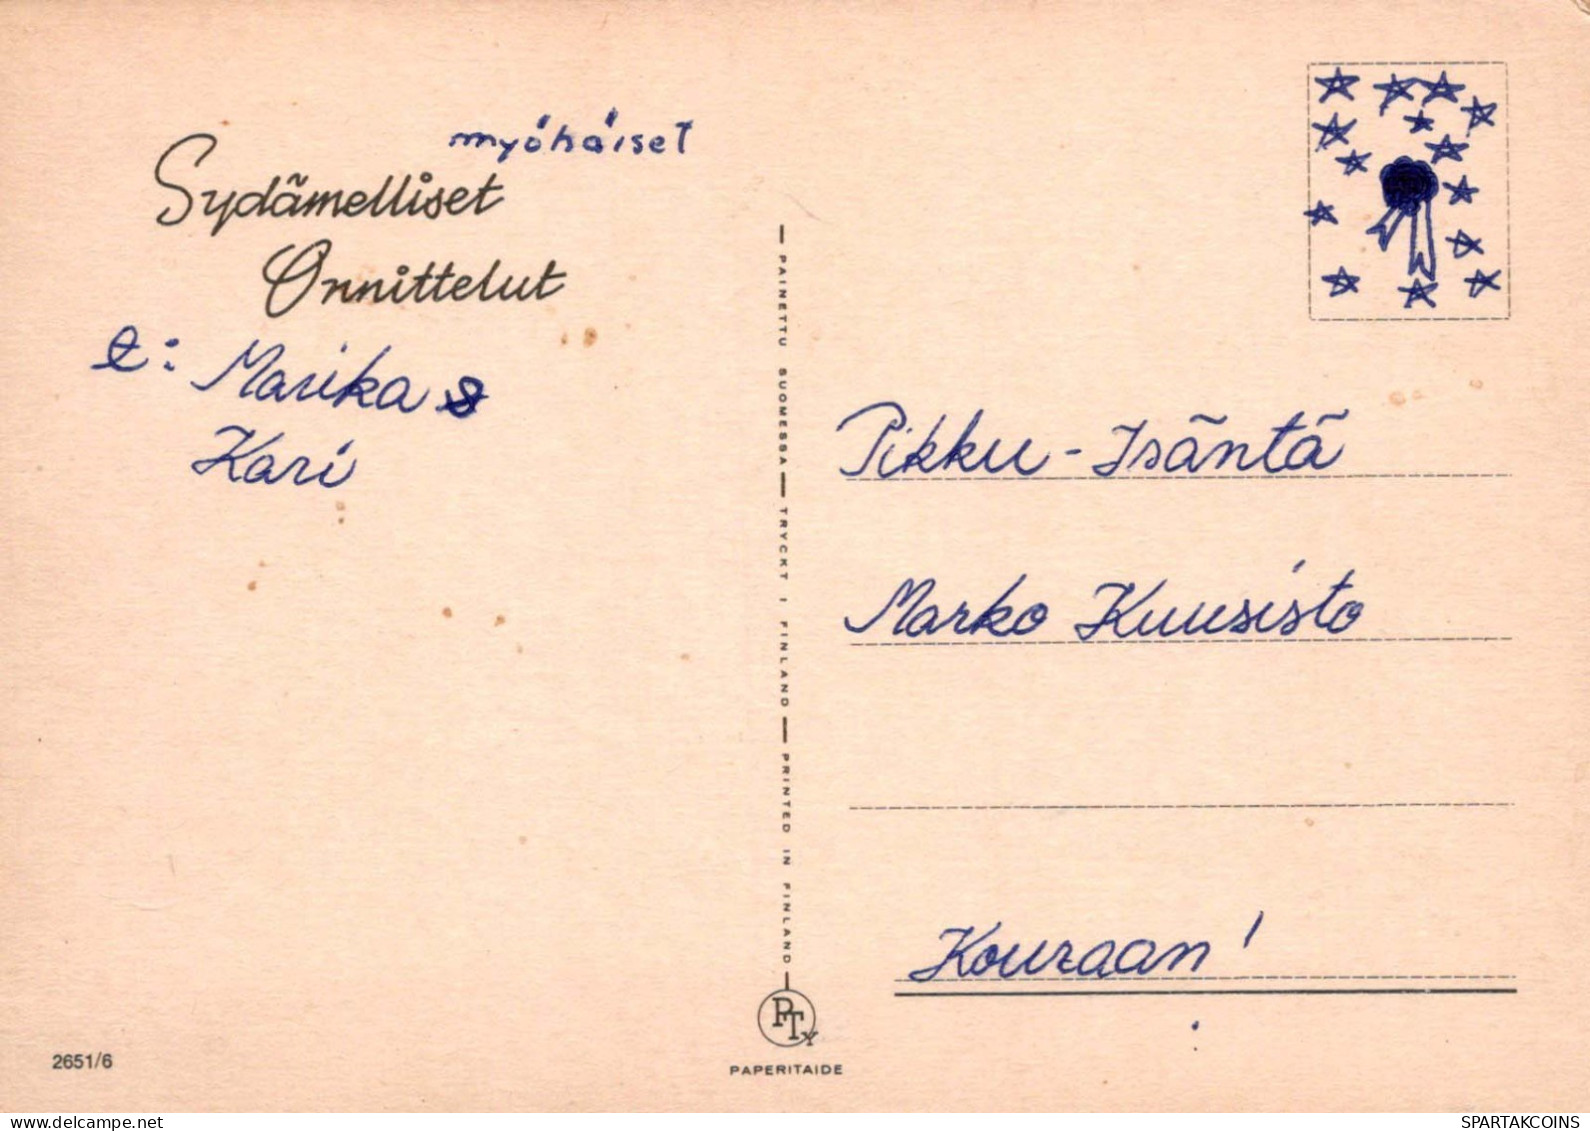 myöhäiset
Sydämelliset
Onnittelut
t: Marika &
Kari
PAINETTU SUOMESSA — TRYCKT I FINLAND — PRINTED IN FINLAND
Pikku-Isäntä
Marko Kuusisto
Kouraan!
PTy
PAPERITAIDE
2651/6
SPARTAKCOINS